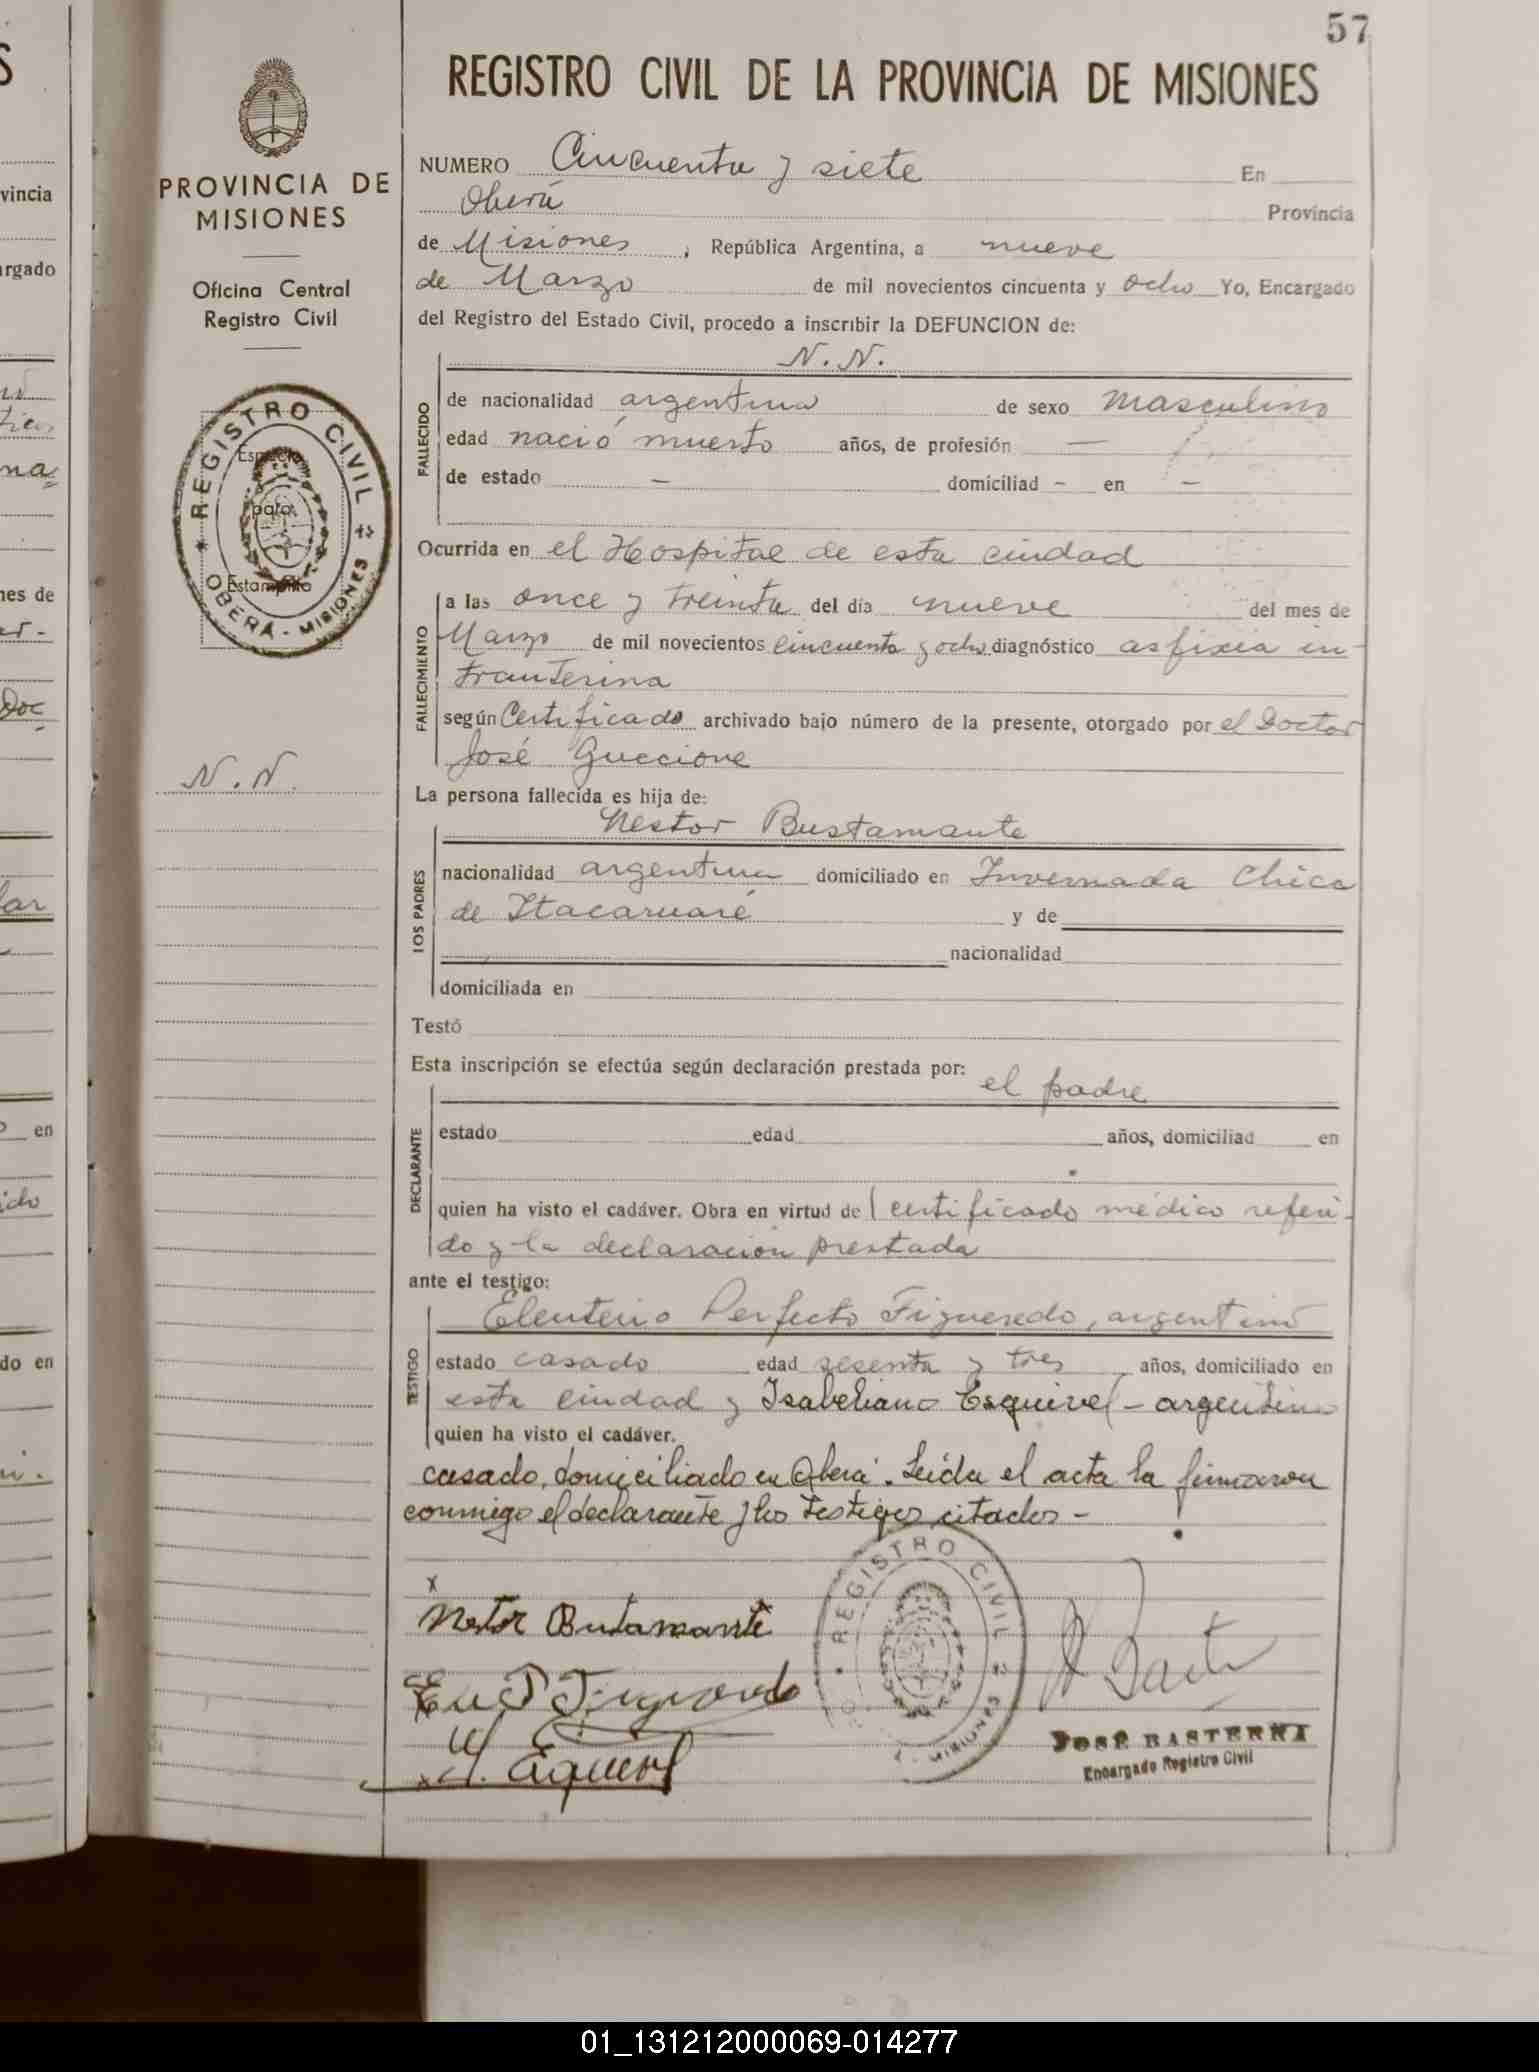 57
REGISTRO CIVIL DE LA PROVINCIA DE MISIONES
PROVINCIA DE
MISIONES
Oficina Central
Registro Civil
REGISTRO CIVIL
OBERÁ - MISIONES
Espacio
para
Estampilla
N. N.
NUMERO Cincuenta y siete En
Oberá Provincia
de Misiones, República Argentina, a nueve
de Marzo de mil novecientos cincuenta y ocho Yo, Encargado
del Registro del Estado Civil, procedo a inscribir la DEFUNCION de:
N. N.
FALLECIDO
de nacionalidad argentina de sexo masculino
edad nació muerto años, de profesión —
de estado — domiciliad - en —
Ocurrida en el Hospital de esta ciudad
FALLECIMIENTO
a las once y treinta del día nueve del mes de
Marzo de mil novecientos cincuenta y ocho diagnóstico asfixia in-
trauterina
según Certificado archivado bajo número de la presente, otorgado por el Doctor
José Guccione
La persona fallecida es hija de:
Nestor Bustamante
LOS PADRES
nacionalidad argentina domiciliado en Invernada Chica
de Itacaruaré y de
nacionalidad
domiciliada en
Testó
Esta inscripción se efectúa según declaración prestada por:
el padre
DECLARANTE
estado edad años, domiciliad en
quien ha visto el cadáver. Obra en virtud del certificado médico referi-
do y la declaración prestada
ante el testigo:
Eleuterio Perfecto Figueredo, argentino
TESTIGO
estado casado edad sesenta y tres años, domiciliado en
esta ciudad y Isabeliano Esquivel - argentino
quien ha visto el cadáver.
casado, domiciliado en Oberá. Leída el acta la firmaron
conmigo el declarante y los testigos citados -
x
Nestor Butamante
REGISTRO CIVIL
MISIONES
JOSÉ BASTERRA
Encargado Registro Civil
01_131212000069-014277